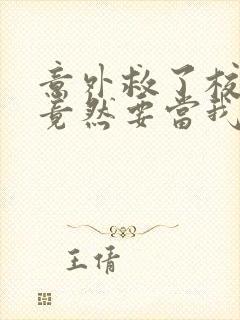 意外救了校
竟然要当我
王倩